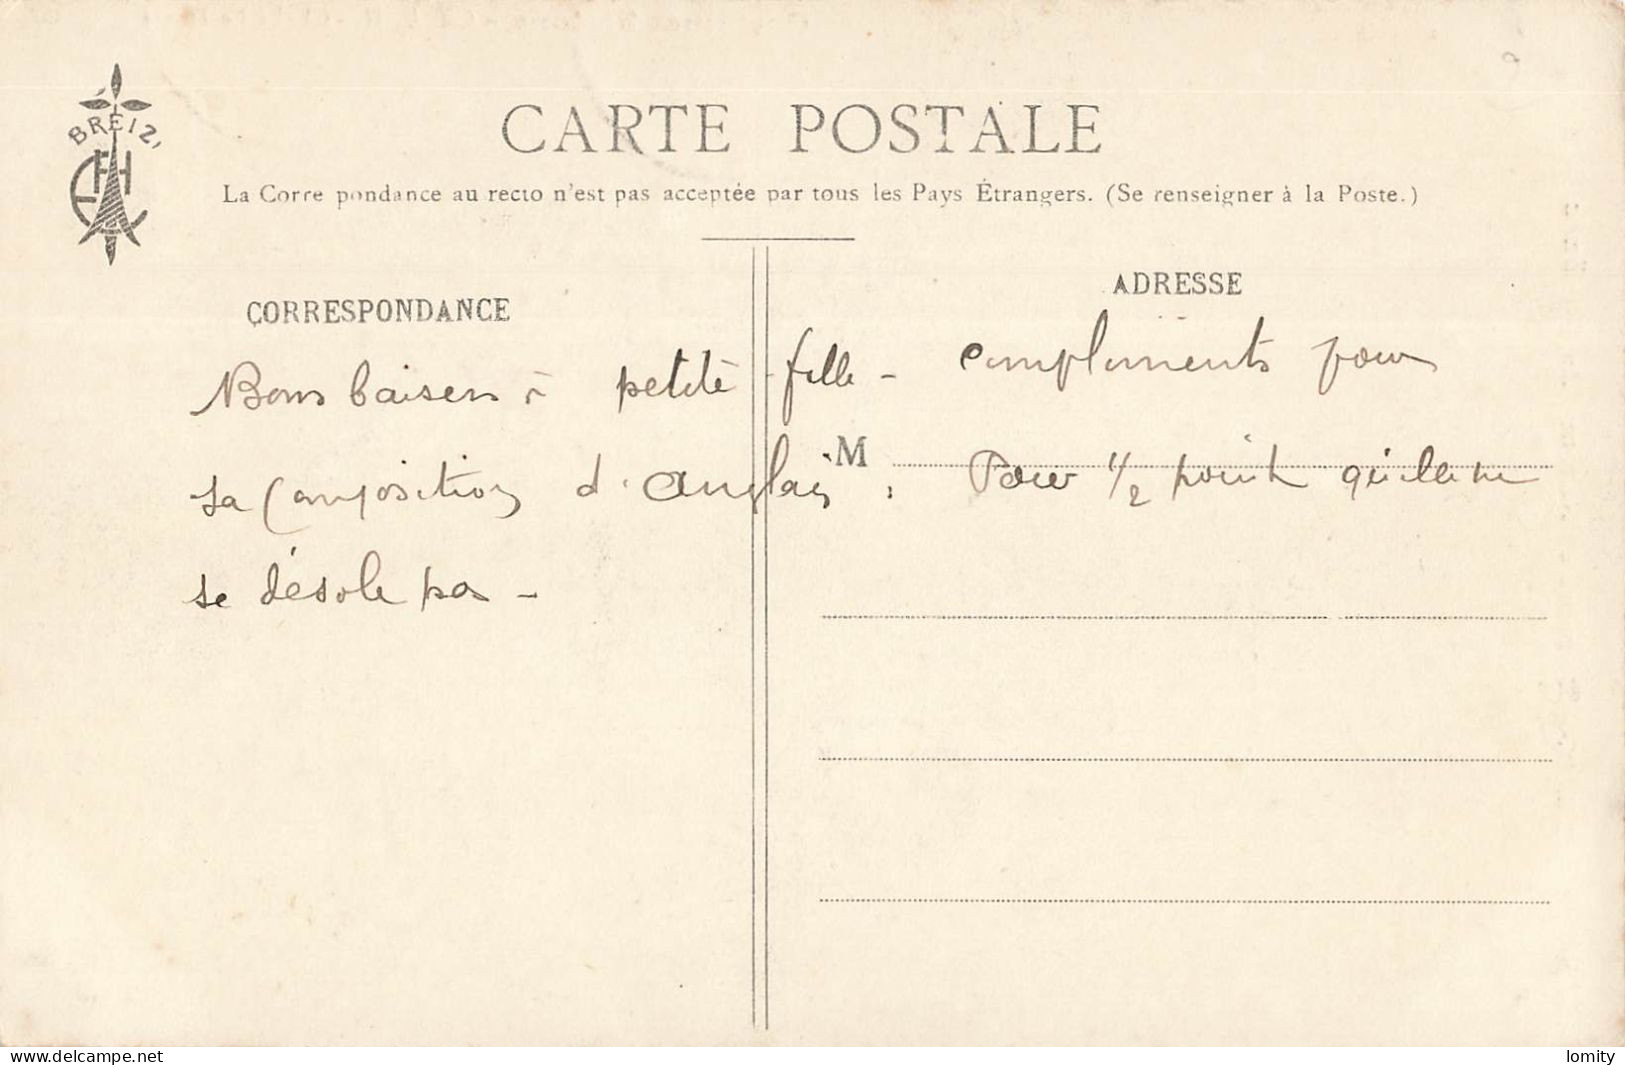 BREIZ
CARTE POSTALE
La Corre pondance au recto n'est pas acceptée par tous les Pays Étrangers. (Se renseigner à la Poste.)
CORRESPONDANCE
ADRESSE
Bons baisers à petite fille - compliments pour
M
sa composition d'Anglais. Pour 1/2 point qu'elle ne
se désole pas -
www.delcampe.net
lomity